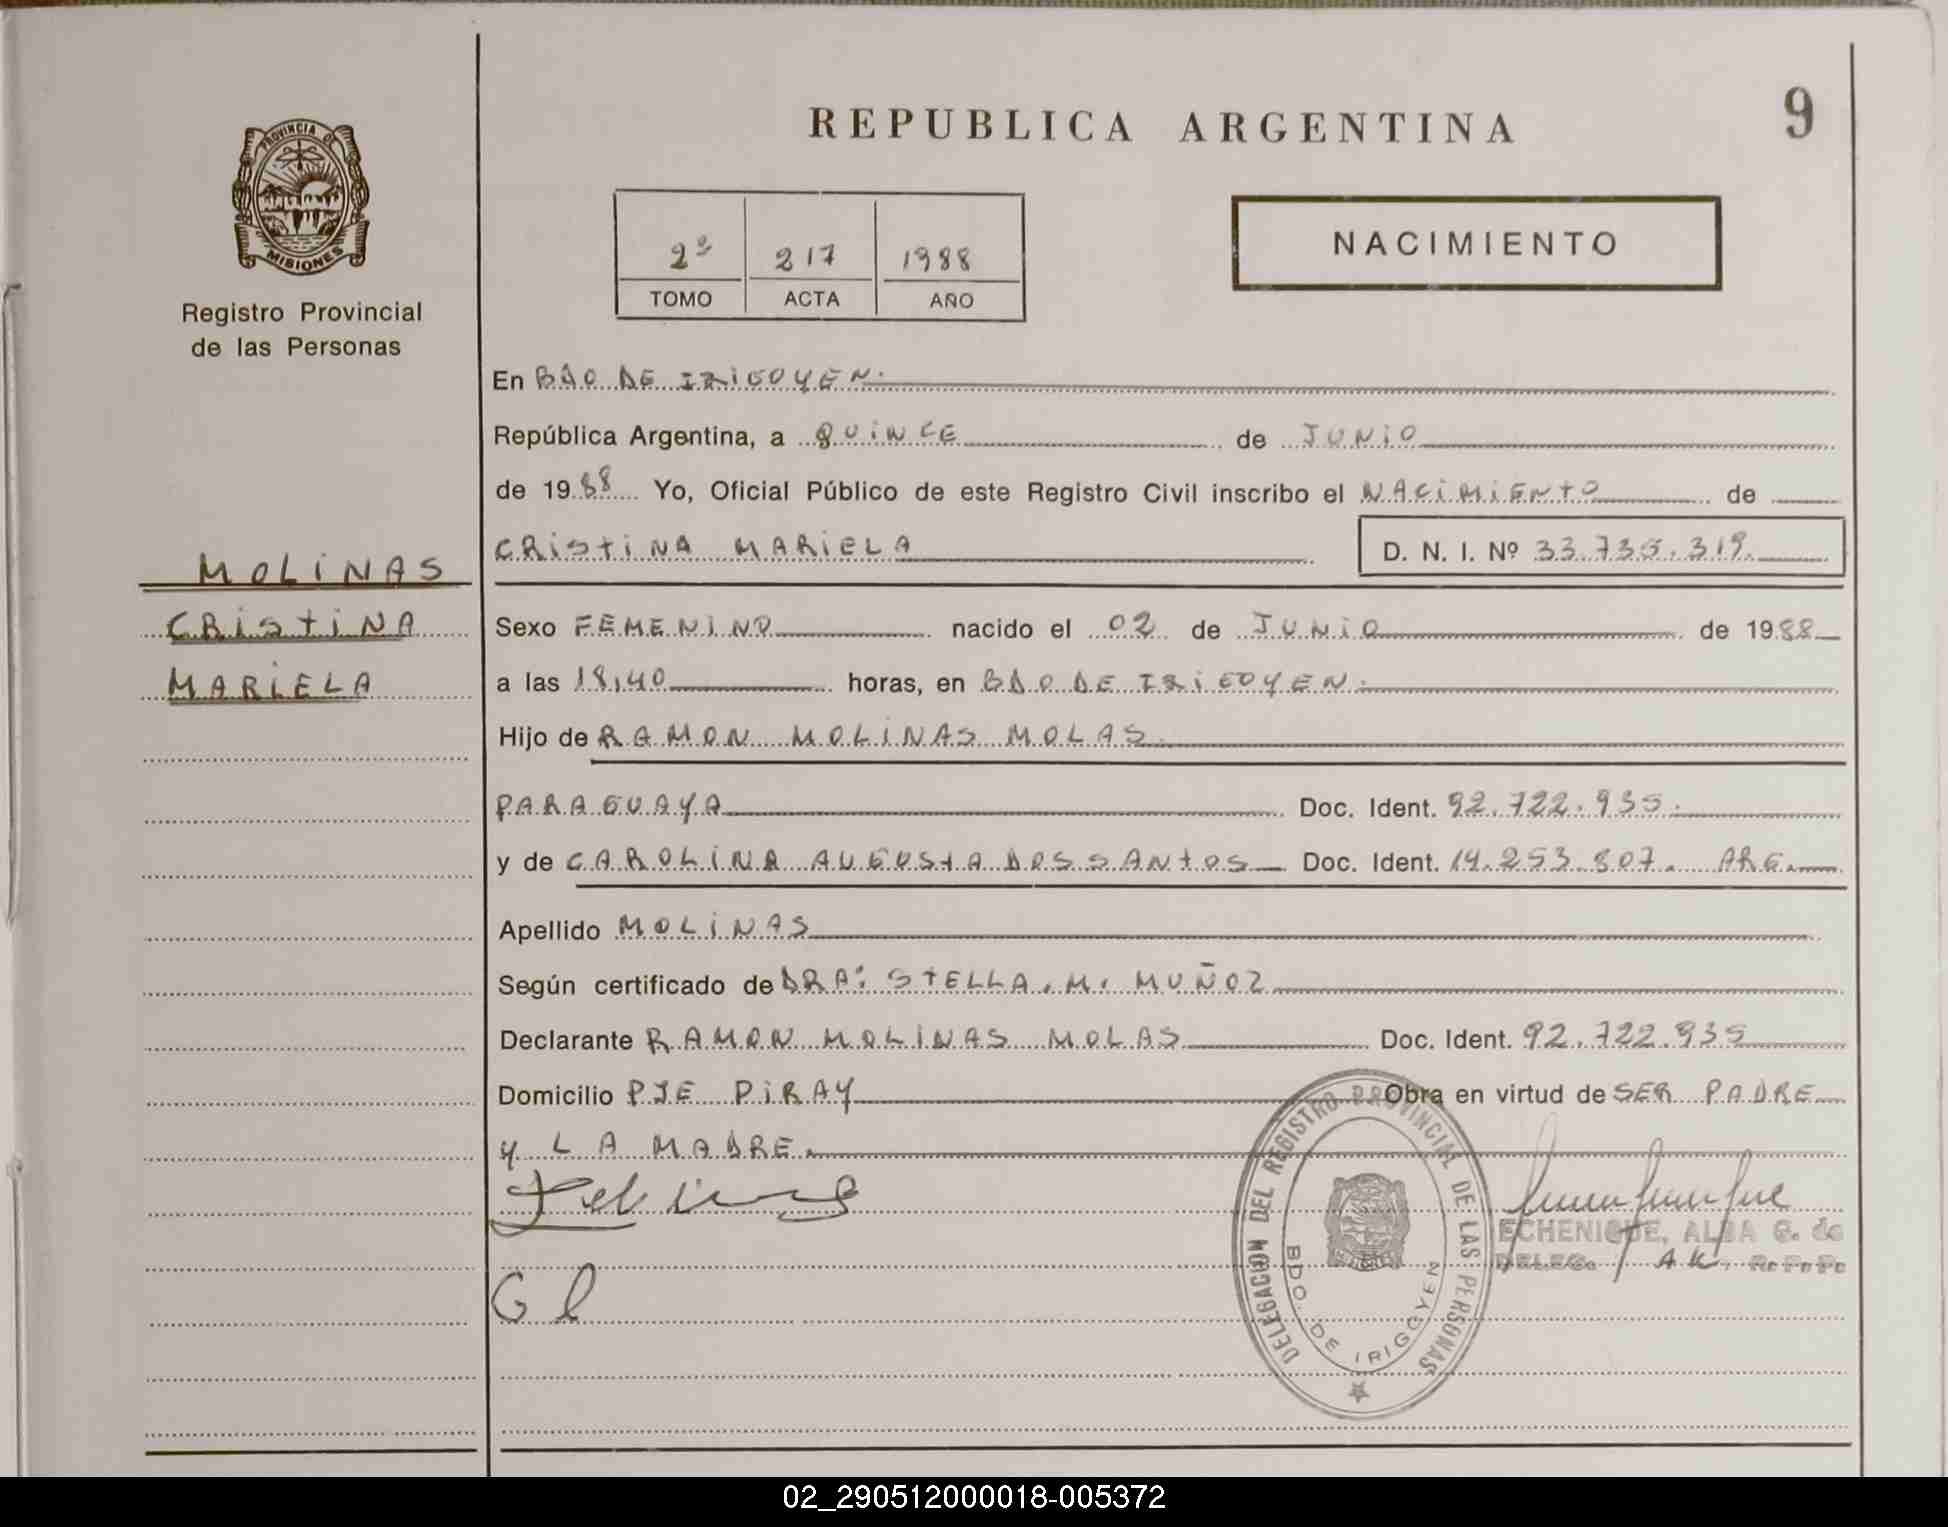 REPUBLICA ARGENTINA
9
PROVINCIA DE
MISIONES
Registro Provincial
de las Personas
2º 217 1988
TOMO ACTA AÑO
NACIMIENTO
En BDO DE IRIGOYEN.
República Argentina, a QUINCE de JUNIO
de 1988 Yo, Oficial Público de este Registro Civil inscribo el NACIMIENTO de
CRISTINA MARIELA D. N. I. Nº 33.735.319.
MOLINAS
CRISTINA
MARIELA
Sexo FEMENINO nacido el 02 de JUNIO de 1988
a las 18,40 horas, en BDO DE IRIGOYEN.
Hijo de RAMON MOLINAS MOLAS.
PARAGUAYA Doc. Ident. 92.722.935.
y de CAROLINA AUGUSTA DOS SANTOS Doc. Ident. 14.253.807. ARG.
Apellido MOLINAS
Según certificado de DRA: STELLA. M. MUÑOZ
Declarante RAMON MOLINAS MOLAS Doc. Ident. 92.722.935
Domicilio PJE PIRAY Obra en virtud de SER PADRE
Y LA MADRE.
ECHENIQUE, ALBA G. de
DELEG. R. P. P.
DELEGACION DEL REGISTRO PROVINCIAL DE LAS PERSONAS
BDO. DE IRIGOYEN
02_290512000018-005372